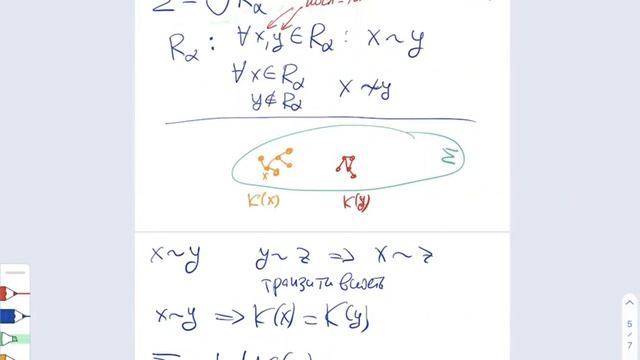 Σ = ∪ Rα
Rα : ∀x,y ∈ Rα : x ~ y
∀x ∈ Rα
y ∉ Rα x ≁ y
x M
K(x) K(y)
x ~ y y ~ z ⇒ x ~ z
транзитивность
x ~ y ⇒ K(x) = K(y)
5
7